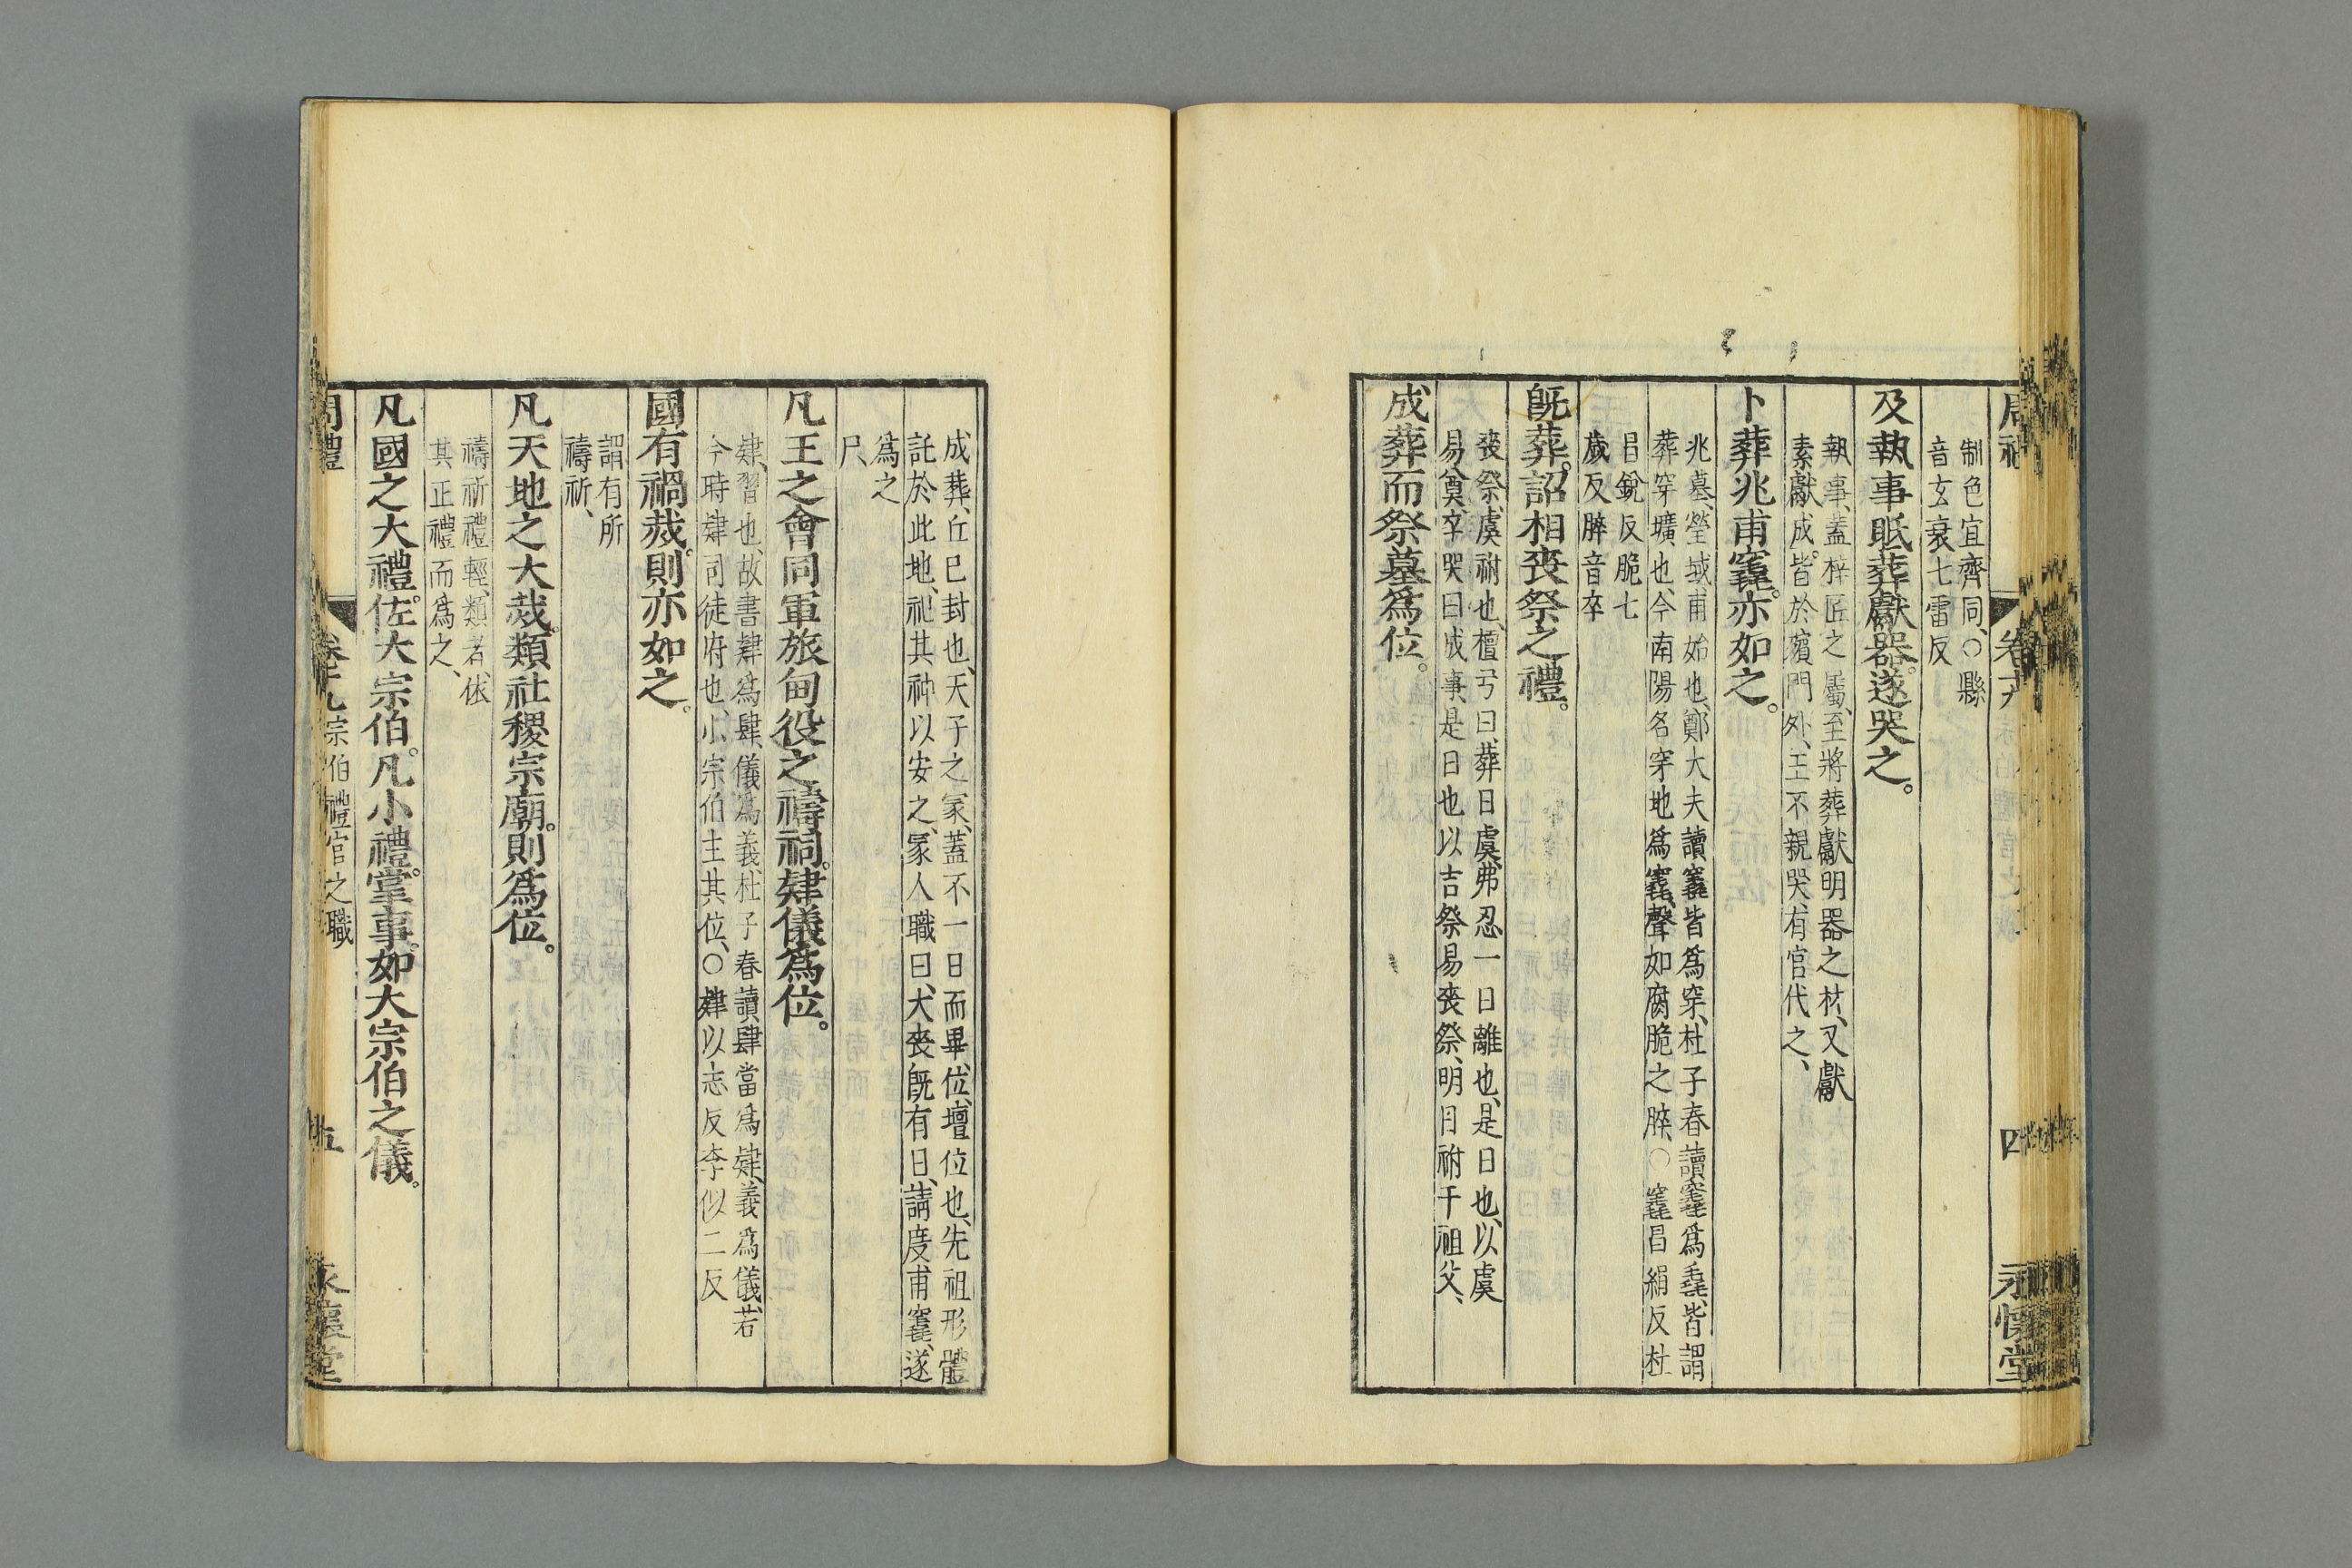 制色宜齊同、○縣
音玄衰七雷反
及執事眡葬獻器。遂哭之。
執事、蓋梓匠之屬、至將葬獻明器之材、又獻
素獻成。皆於殯門外、王不親哭、有官代之、
卜葬兆甫竁。亦如之。
兆、墓塋域、甫始也、鄭大夫讀竁皆爲穿、杜子春讀竁爲毳、皆謂
葬穿壙也、今南陽名穿地爲竁、聲如腐脆之脺、○竁昌絹反杜
昌銳反脆七
歲反脺音卒
旣葬。詔相喪祭之禮。
喪祭、虞祔也、檀弓曰、葬日虞、弗忍一日離也、是日也、以虞
易奠、卒哭曰成事、是日也以吉祭易喪祭、明日祔于祖父、
成葬而祭墓爲位。
成葬、丘已封也、天子之冢、蓋不一日而畢、位、壇位也、先祖形體
託於此地、祀其神以安之、冢人職曰、大喪旣有日、請度甫竁、遂
爲之
尸、
凡王之會同軍旅甸役之禱祠。肄儀爲位。
肄、習也、故書肄爲肆、儀爲義、杜子春讀肆當爲肄、義爲儀、若
今時肄司徒府也、小宗伯主其位、○肄以志反李似二反
國有禍烖。則亦如之。
謂有所
禱祈、
凡天地之大烖。類社稷宗廟。則爲位。
禱祈禮輕、類者、依
其正禮而爲之、
凡國之大禮。佐大宗伯。凡小禮。掌事。如大宗伯之儀。
周禮 卷十九 宗伯禮官之職 五 永懷堂